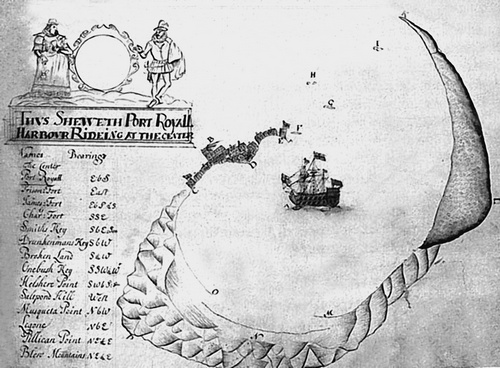 Thus Sheweth Port Royall
Harbour Rideing at the Center
Names Bearings
The Center
Port Royall E b S
Prison Fort East
James Fort
Charls Fort SSE
Smiths Key
Drunkenmans Key S b W
Broken Land S & W
Onebush Key
Helshire Point
Saltpond Hill West
Musqueta Point N b W
Ligone N b E
Pillican Point N E & E
Blew Mountains N E & E
I
H
G
F
O
N
M
L